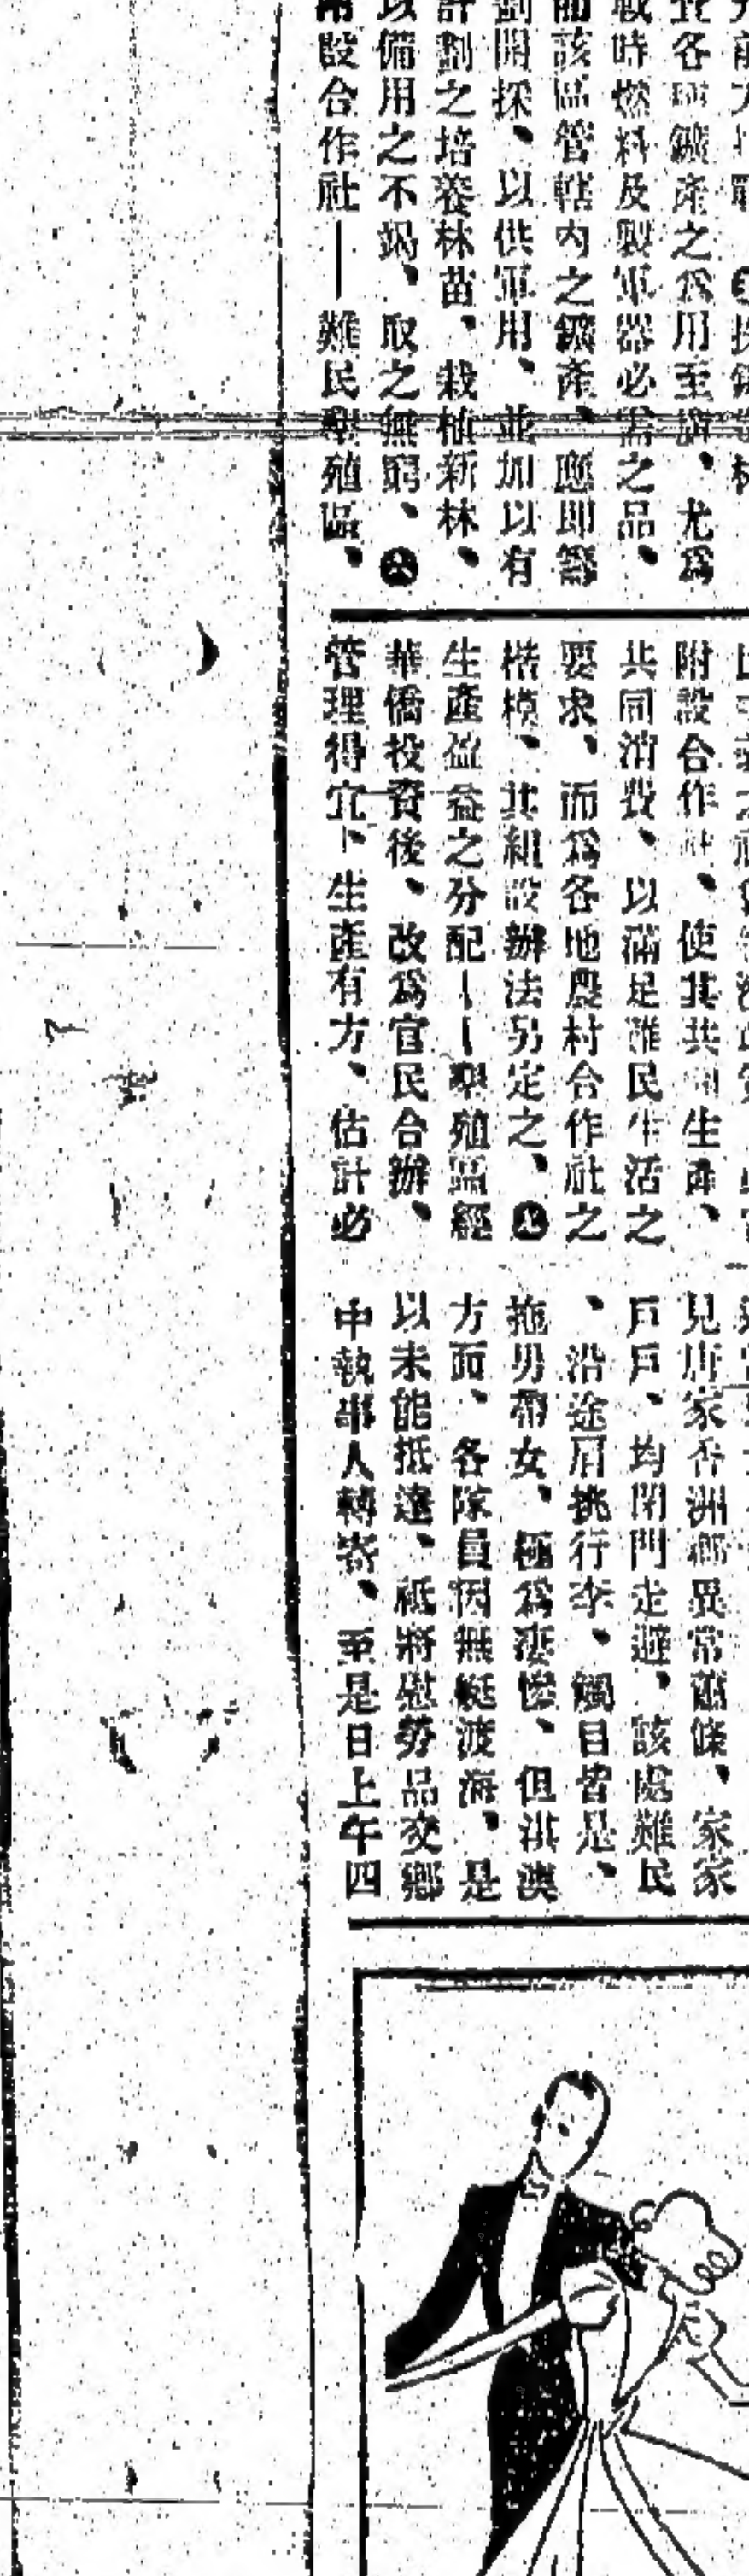 查各種鑛產之爲用至廣、尤爲
戰時燃料及製軍器必需之品、
前該區管轄內之鑛產、應即籌
劃開採、以供軍用、並加以有
計劃之培養林苗、栽植新林、
以備用之不竭、取之無窮、㊅
設合作社——難民墾殖區、
附設合作社、使其共同生產、
共同消費、以滿足難民生活之
要求、而爲各地農村合作社之
楷模、其組設辦法另定之、
生產盈益之分配——墾殖區經
華僑投資後、改爲官民合辦、
管理得宜、生產有方、估計必
見唐家香洲鄉異常蕭條、家家
戶戶、均閉門走避、該處難民
、沿途肩挑行李、觸目皆是、
拖男帶女、極爲淒慘、但淇澳
方面、各隊員因無艇渡海、是
以未能抵達、祗將慰勞品交鄉
中執事人轉寄、至是日上午四